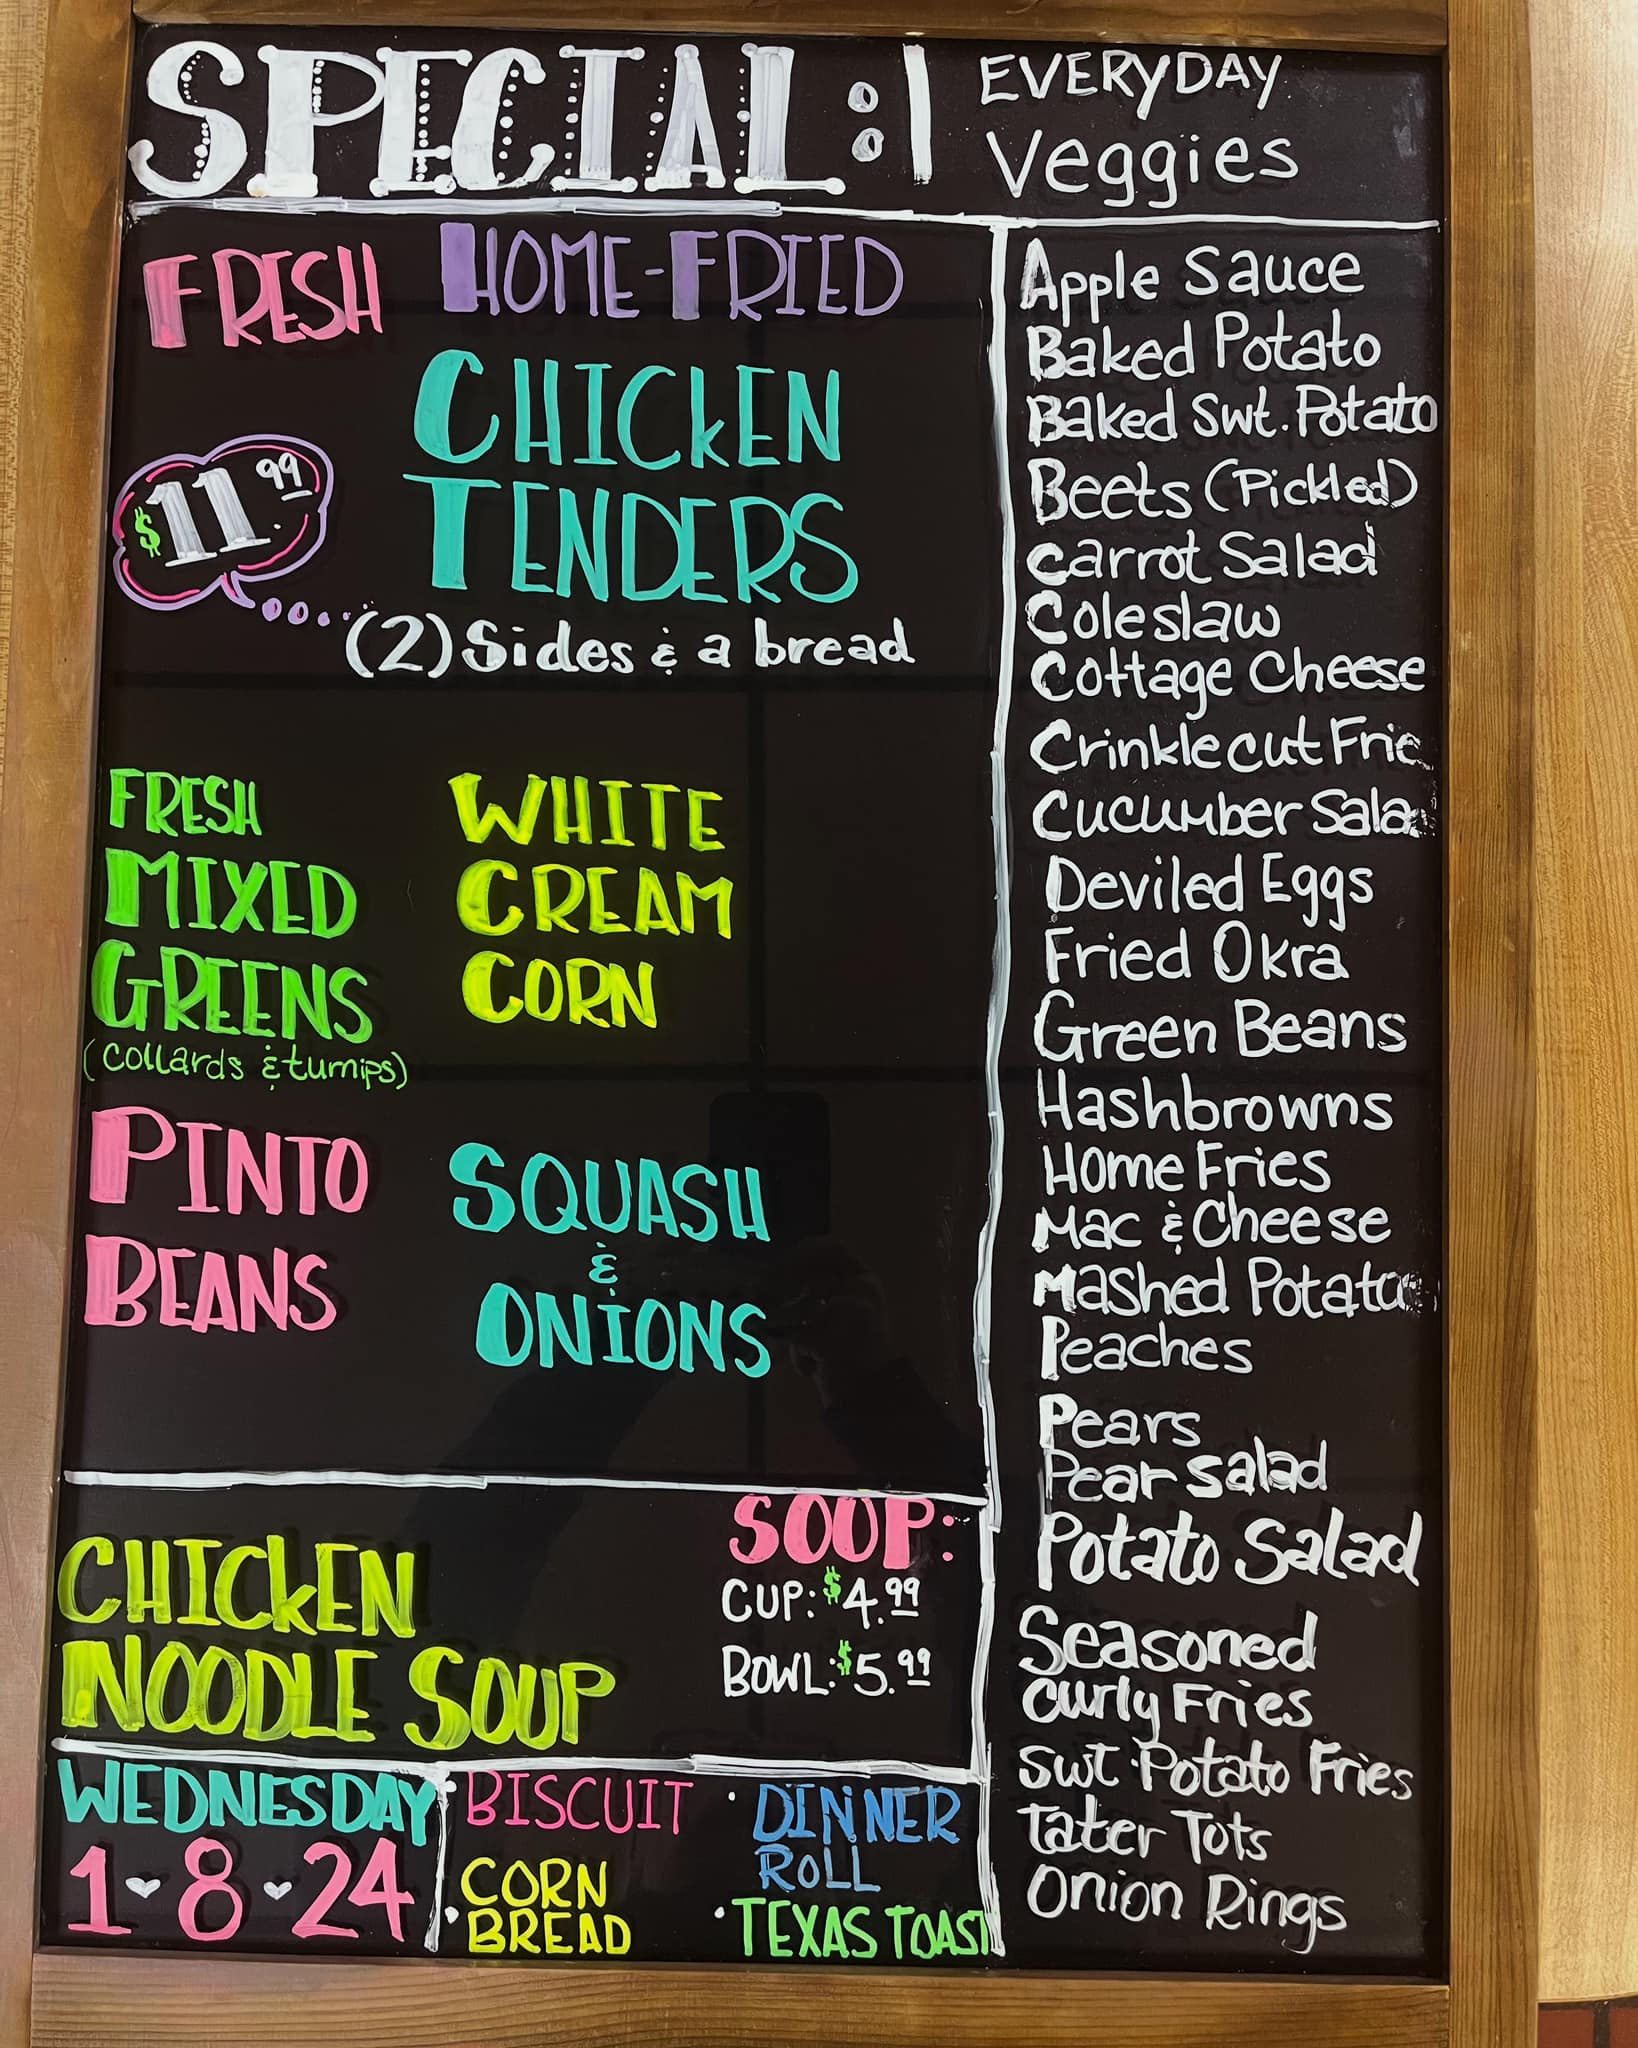 SPECIAL:
FRESH HOME-FRIED
CHICKEN
TENDERS
$11.99
(2) Sides & a bread
FRESH
MIXED
GREENS
(collards & turnips)
WHITE
CREAM
CORN
PINTO
BEANS
SQUASH
&
ONIONS
CHICKEN
NOODLE SOUP
SOUP:
CUP: $4.99
BOWL: $5.99
WEDNESDAY
1-8-24
• BISCUIT
• CORN
BREAD
• DINNER
ROLL
• TEXAS TOAST
EVERYDAY
Veggies
Apple Sauce
Baked Potato
Baked Swt. Potato
Beets (Pickled)
Carrot Salad
Coleslaw
Cottage Cheese
Crinklecut Frie
Cucumber Sala
Deviled Eggs
Fried Okra
Green Beans
Hashbrowns
Home Fries
Mac & Cheese
Mashed Potato
Peaches
Pears
Pear Salad
Potato Salad
Seasoned
Curly Fries
Swt. Potato Fries
Tater Tots
Onion Rings